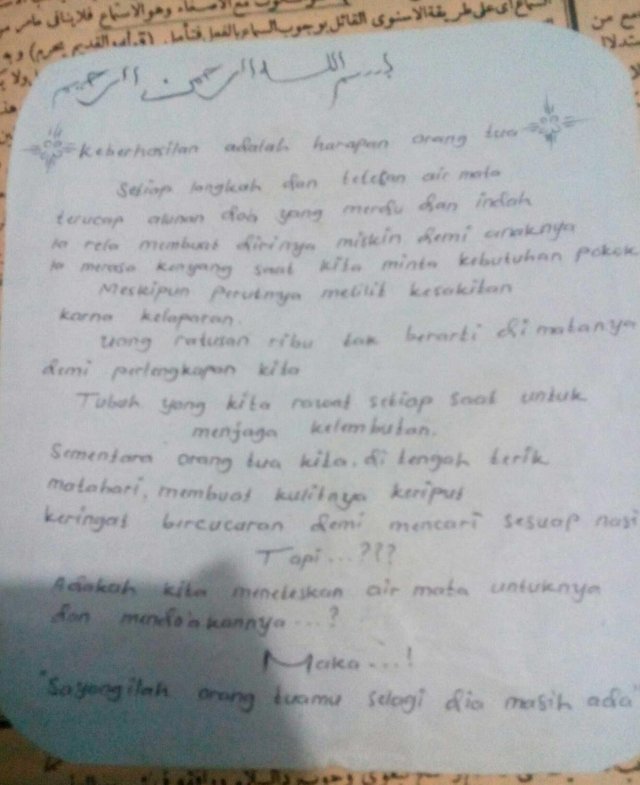 بسم الله الرحمن الرحيم
Keberhasilan adalah harapan orang tua
Setiap langkah dan tetesan air mata
terucap alunan doa yang merdu dan indah
Ia rela membuat dirinya miskin demi anaknya
Ia merasa kenyang saat kita minta kebutuhan pokok
Meskipun perutnya melilit kesakitan
karna kelaparan.
Uang ratusan ribu tak berarti di matanya
demi perlengkapan kita
Tubuh yang kita rawat setiap saat untuk
menjaga kelembutan.
Sementara orang tua kita, di tengah terik
matahari, membuat kulitnya keriput
keringat bercucuran demi mencari sesuap nasi
Tapi...???
Adakah kita meneteskan air mata untuknya
dan mendo'akannya...?
Maka...!
"Sayangilah orang tuamu selagi dia masih ada"